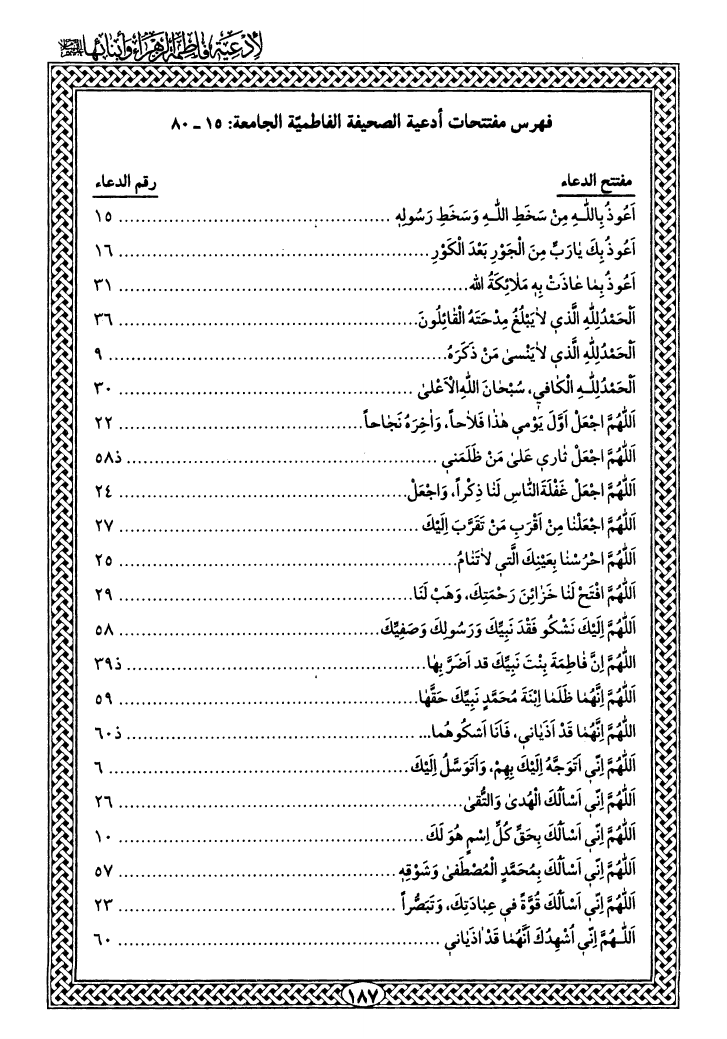 لأدعية فاطمة الزهراء وأبنائها
فهرس مفتتحات أدعية الصحيفة الفاطميّة الجامعة: ١٥ ـ ٨٠
مفتتح الدعاء رقم الدعاء
اَعُوذُ بِاللّـهِ مِنْ سَخَطِ اللّـهِ وَسَخَطِ رَسُولِهِ ........ ١٥
اَعُوذُ بِكَ يٰارَبِّ مِنَ الْجَوْرِ بَعْدَ الْكَوْرِ ........ ١٦
اَعُوذُ بِمٰا عٰاذَتْ بِهِ مَلٰائِكَةُ الله ........ ٣١
اَلْحَمْدُلِلّٰهِ الَّذي لٰا يَبْلُغُ مِدْحَتَهُ الْقٰائِلُونَ ........ ٣٦
اَلْحَمْدُلِلّٰهِ الَّذي لٰا يَنْسىٰ مَنْ ذَكَرَهُ ........ ٩
اَلْحَمْدُلِلّـهِ الْكٰافي، سُبْحٰانَ اللّٰهِ الْاَعْلىٰ ........ ٣٠
اَللّٰهُمَّ اجْعَلْ اَوَّلَ يَوْمي هٰذٰا فَلٰاحاً، وَاٰخِرَهُ نَجٰاحاً ........ ٢٢
اَللّٰهُمَّ اجْعَلْ ثٰاري عَلىٰ مَنْ ظَلَمَني ........ ذ٥٨
اَللّٰهُمَّ اجْعَلْ غَفْلَةَ النّٰاسِ لَنٰا ذِكْراً، وَاجْعَلْ ........ ٢٤
اَللّٰهُمَّ اجْعَلْنٰا مِنْ اَقْرَبِ مَنْ تَقَرَّبَ اِلَيْكَ ........ ٢٧
اَللّٰهُمَّ احْرُسْنٰا بِعَيْنِكَ الَّتي لٰا تَنٰامُ ........ ٢٥
اَللّٰهُمَّ افْتَحْ لَنٰا خَزٰائِنَ رَحْمَتِكَ، وَهَبْ لَنٰا ........ ٢٩
اَللّٰهُمَّ اِلَيْكَ نَشْكُو فَقْدَ نَبِيِّكَ وَرَسُولِكَ وَصَفِيِّكَ ........ ٥٨
اللّٰهُمَّ اِنَّ فٰاطِمَةَ بِنْتَ نَبِيِّكَ قد اَضَرَّ بِهٰا ........ ذ٣٩
اَللّٰهُمَّ اِنَّهُمٰا ظَلَمٰا اِبْنَةَ مُحَمَّدٍ نَبِيِّكَ حَقَّهٰا ........ ٥٩
اللّٰهُمَّ اِنَّهُمٰا قَدْ اٰذَيٰاني، فَاَنَا اَشْكُوهُما... ........ ذ٦٠
اَللّٰهُمَّ اِنّي اَتَوَجَّهُ اِلَيْكَ بِهِمْ، وَاَتَوَسَّلُ اِلَيْكَ ........ ٦
اَللّٰهُمَّ اِنّي اَسْاَلُكَ الْهُدىٰ وَالتُّقىٰ ........ ٢٦
اَللّٰهُمَّ اِنّي اَسْاَلُكَ بِحَقِّ كُلِّ اِسْمٍ هُوَ لَكَ ........ ١٠
اَللّٰهُمَّ اِنّي اَسْاَلُكَ بِمُحَمَّدٍ الْمُصْطَفىٰ وَشَوْقِهِ ........ ٥٧
اَللّٰهُمَّ اِنّي اَسْاَلُكَ قُوَّةً في عِبٰادَتِكَ، وَتَبَصُّراً ........ ٢٣
اَللّـهُمَّ اِنّي اُشْهِدُكَ اَنَّهُمٰا قَدْ اٰذَيٰاني ........ ٦٠
١٨٧